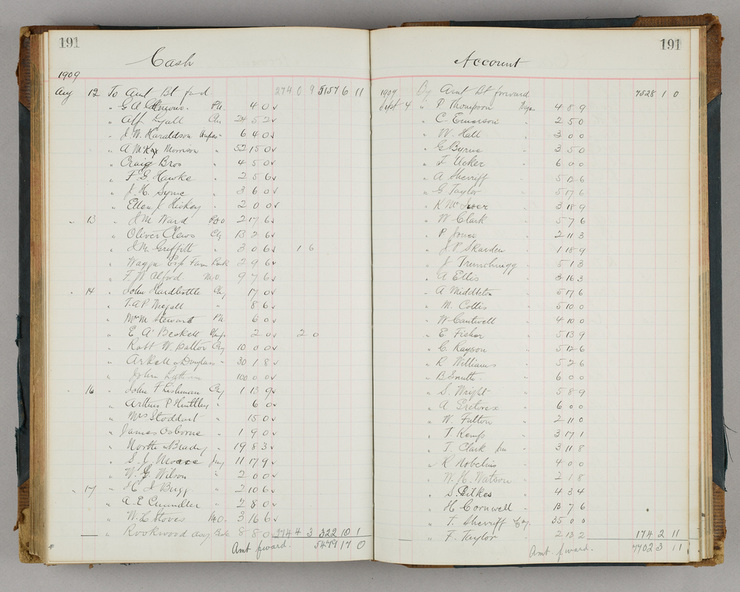 191
Cash
1909
Aug 12 To Amt Bt fwd 374 0 9 5157 6 11
" G A Pk. 4 0
" Alf Lyall Chq 24 5 2
" J W Haraldson 6 4 0
" A McK Morrison 52 15 0
" Craig Bros 4 5 0
" F G Hawke 2 5 6
" J H Syme 3 6 0
" Ellen J Hickey 2 0 0
" 13 J M Ward P.O. 2 17 6
" Oliver Claus Chq 13 2 6
" J M Griffith 3 0 6 1 6
" Wagga Exp Farm 2 9 6
" F W Alford M.O. 9 7 6
" 14 John Hardbottle Chq 17 0
" 8 6
" Wm Steward P.N. 6 0
" E A Beskell 2 0 2 0
" Robt W Dalton Chq 10 0 0
" Arkell & Douglas 30 1 8
" John 100 0 0
" 16 John F Cashman Chq 1 13 9
" Arthur P Huntley 6 0
" Mrs Stoddart 15 0
" James Osborne 1 9 0
" North Bradley 19 8 3
" S J 11 17 9
" W G Wilson 2 0 0
" 17 H J Bugg 2 10 6
" A E Chandler 2 8 0
" W C Groves P.O. 3 16 6
" Rookwood 8 8 0 374 4 3 322 10 1
Amt fward. 5479 17 0
Account 191
1909 By Amt Bt forward 7528 1 0
Sept 4 " P Thompson Wages 4 8 9
" C Emerson " 2 5 0
" W Hall " 3 0 0
" G Byrne " 3 5 0
" F Ucker " 6 0 0
" A Sherriff " 5 12 6
" G Taylor " 5 17 6
" K McIver " 3 18 9
" W Clark " 5 7 6
" P Jones " 2 11 3
" J P Skarden " 1 18 9
" J Trumbugg " 5 1 3
" A Ellis " 3 16 3
" A Middleton " 5 17 6
" M Collis " 5 10 0
" W Cantwell " 4 10 0
" E Fisher " 5 13 9
" C Kayson " 5 12 6
" R Williams " 5 2 6
" B Smith " 6 0 0
" S Wright " 5 8 9
" A " 6 0 0
" W Fulton " 2 11 0
" T Kemp " 3 17 1
" T Clark Jnr " 3 11 8
" R Nobelius " 4 0 0
" W H Watson " 2 1 8
" S Gilkes " 4 3 4
" H Cornwell " 13 7 6
" T Sherriff 35 0 0
" F Taylor " 2 13 2 174 2 11
Amt fward. 7702 3 11